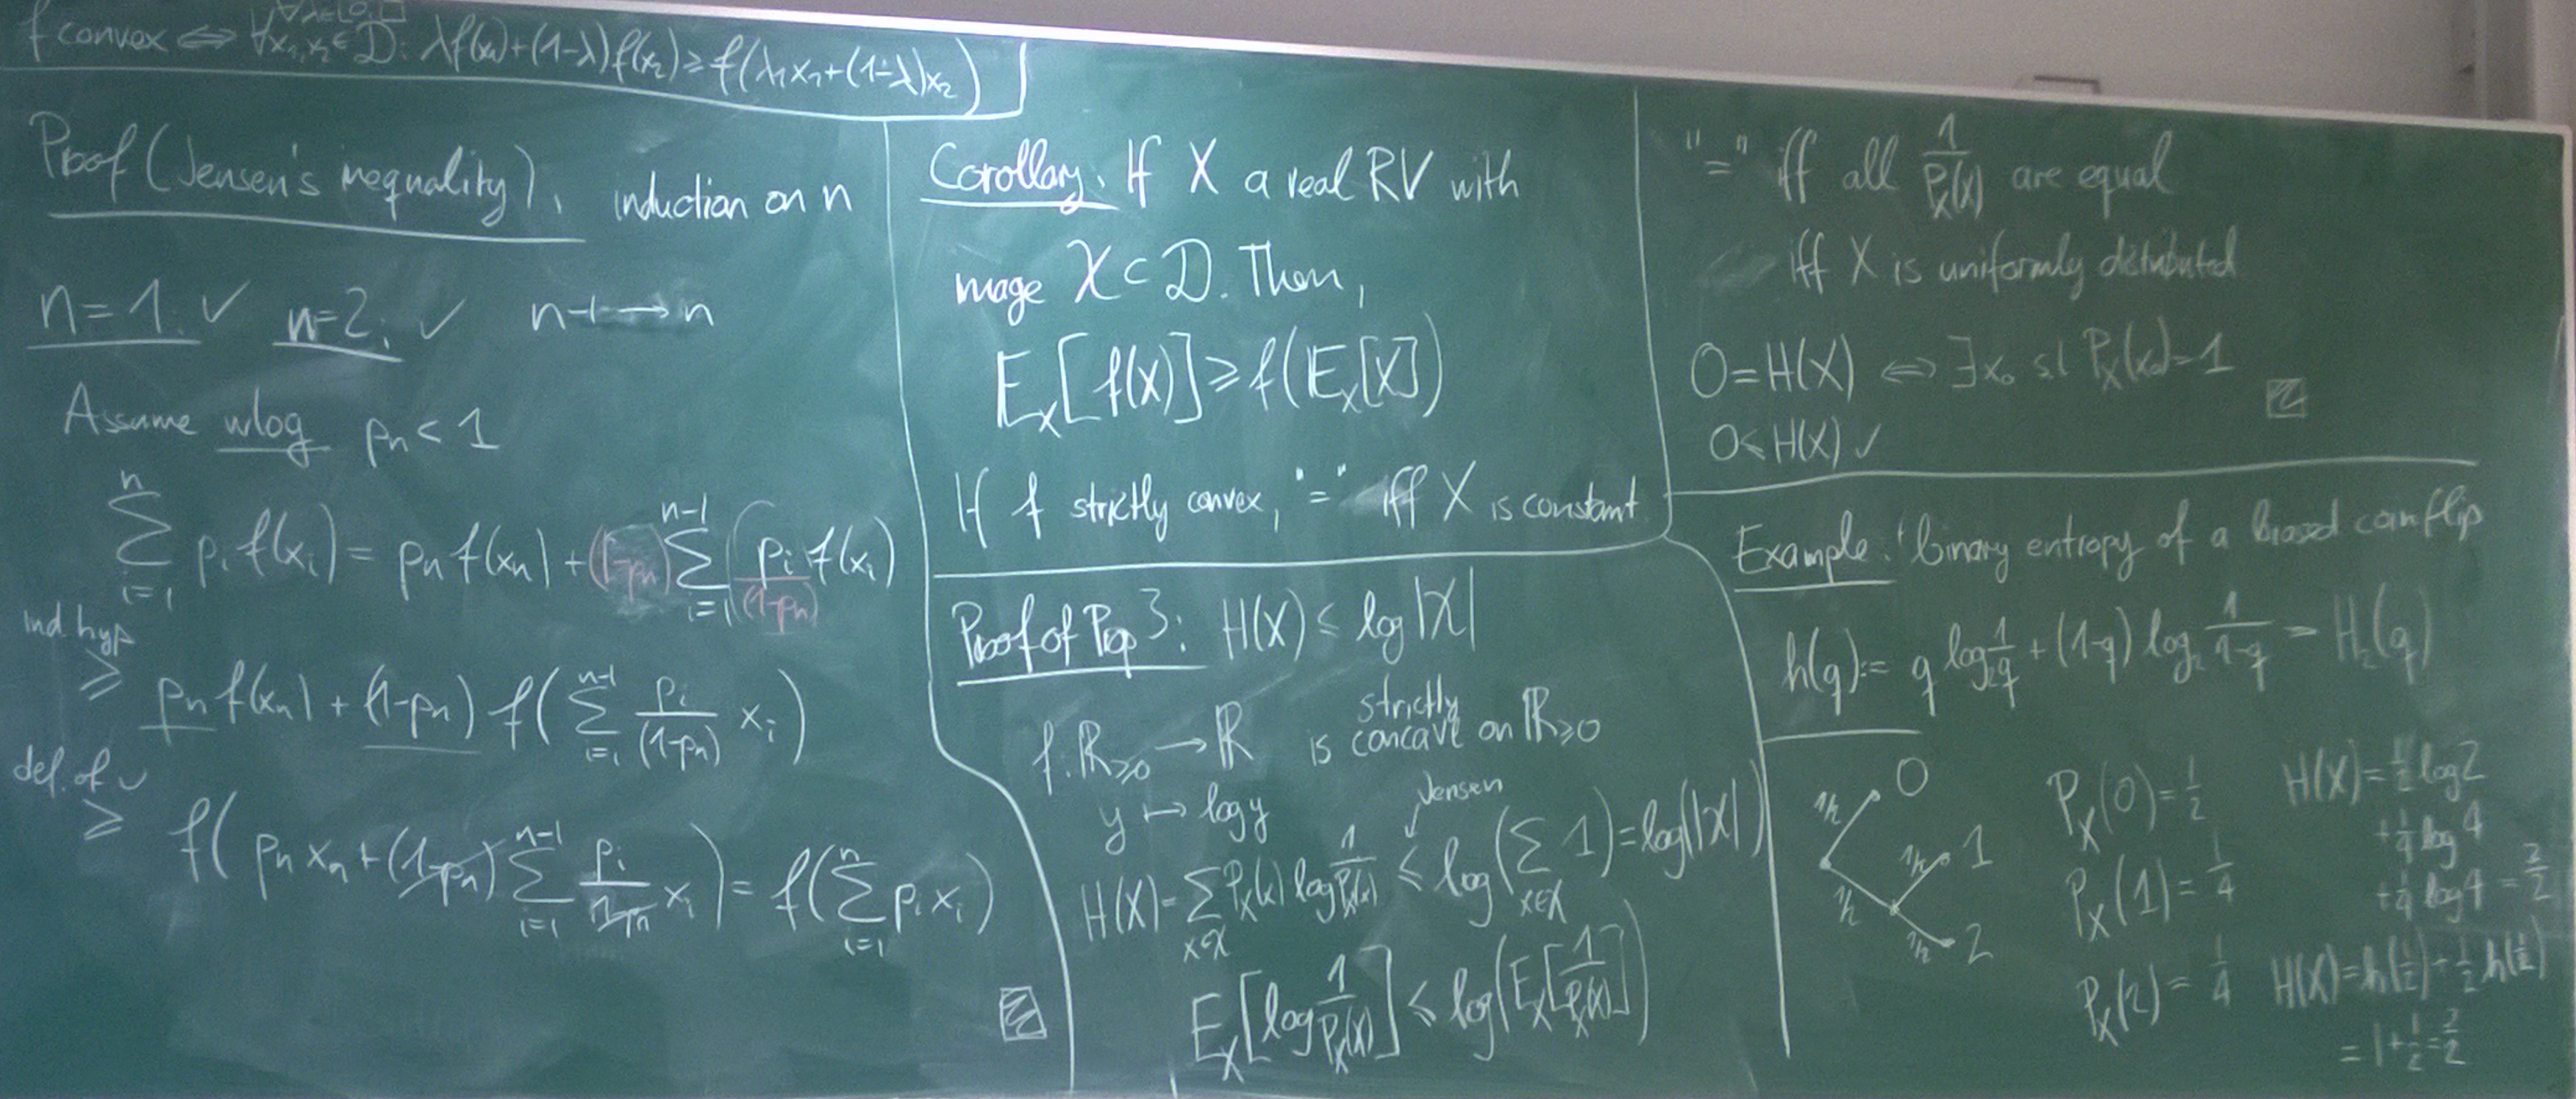 ∀λ∈[0,1]
f convex ⇔ ∀x₁,x₂∈D: λf(x₁)+(1-λ)f(x₂) ≥ f(λ₁x₁+(1-λ)x₂)
Proof (Jensen's inequality). induction on n
n=1: ✓ n=2: ✓ n-1 → n
Assume wlog pn < 1
∑_{i=1}^{n} pi f(xi) = pn f(xn) + (1-pn) ∑_{i=1}^{n-1} pi/(1-pn) f(xi)
ind. hyp
≥ pn f(xn) + (1-pn) f( ∑_{i=1}^{n-1} pi/(1-pn) xi )
def. of ∪
≥ f( pn xn + (1-pn) ∑_{i=1}^{n-1} pi/(1-pn) xi ) = f( ∑_{i=1}^{n} pi xi )
Corollary. If X a real RV with
image 𝒳 ⊂ D. Then,
E_X[f(X)] ≥ f(E_X[X])
If f strictly convex, "=" iff X is constant.
Proof of Prop 3: H(X) ≤ log|𝒳|
f: ℝ≥0 → ℝ is strictly concave on ℝ≥0
y ↦ log y
Jensen
H(X) = ∑_{x∈𝒳} P_X(x) log 1/P_X(x) ≤ log( ∑_{x∈𝒳} 1 ) = log(|𝒳|)
E_X[log 1/P_X(X)] ≤ log(E_X[1/P_X(X)])
"=" iff all 1/P_X(x) are equal
iff X is uniformly distributed
0 = H(X) ⇔ ∃x₀ st P_X(x₀)=1
0 ≤ H(X) ✓
Example: binary entropy of a biased coinflip
h(q) := q log₂ 1/q + (1-q) log₂ 1/1-q = H₂(q)
0
1/2
1/2 1
1/2
1/2 2
P_X(0) = 1/2
P_X(1) = 1/4
P_X(2) = 1/4
H(X) = 1/2 log 2
+ 1/4 log 4
+ 1/4 log 4 = 3/2
H(X) = h(1/2) + 1/2 h(1/2)
= 1 + 1/2 = 3/2